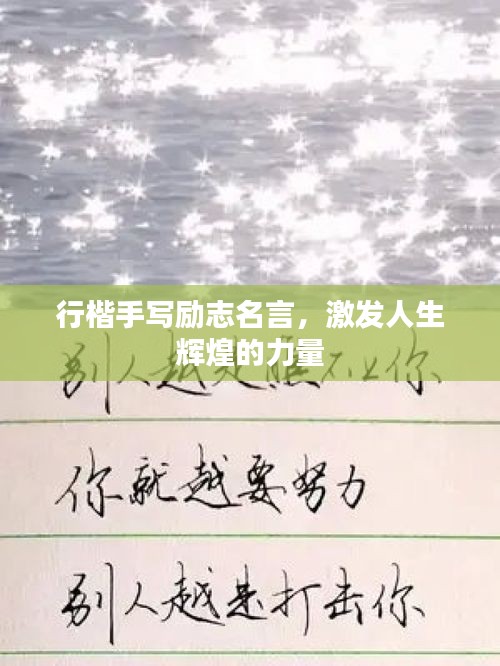 行楷手写励志名言，激发人生
辉煌的力量
别人越是瞧不上你
你就越要努力
别人越是打击你